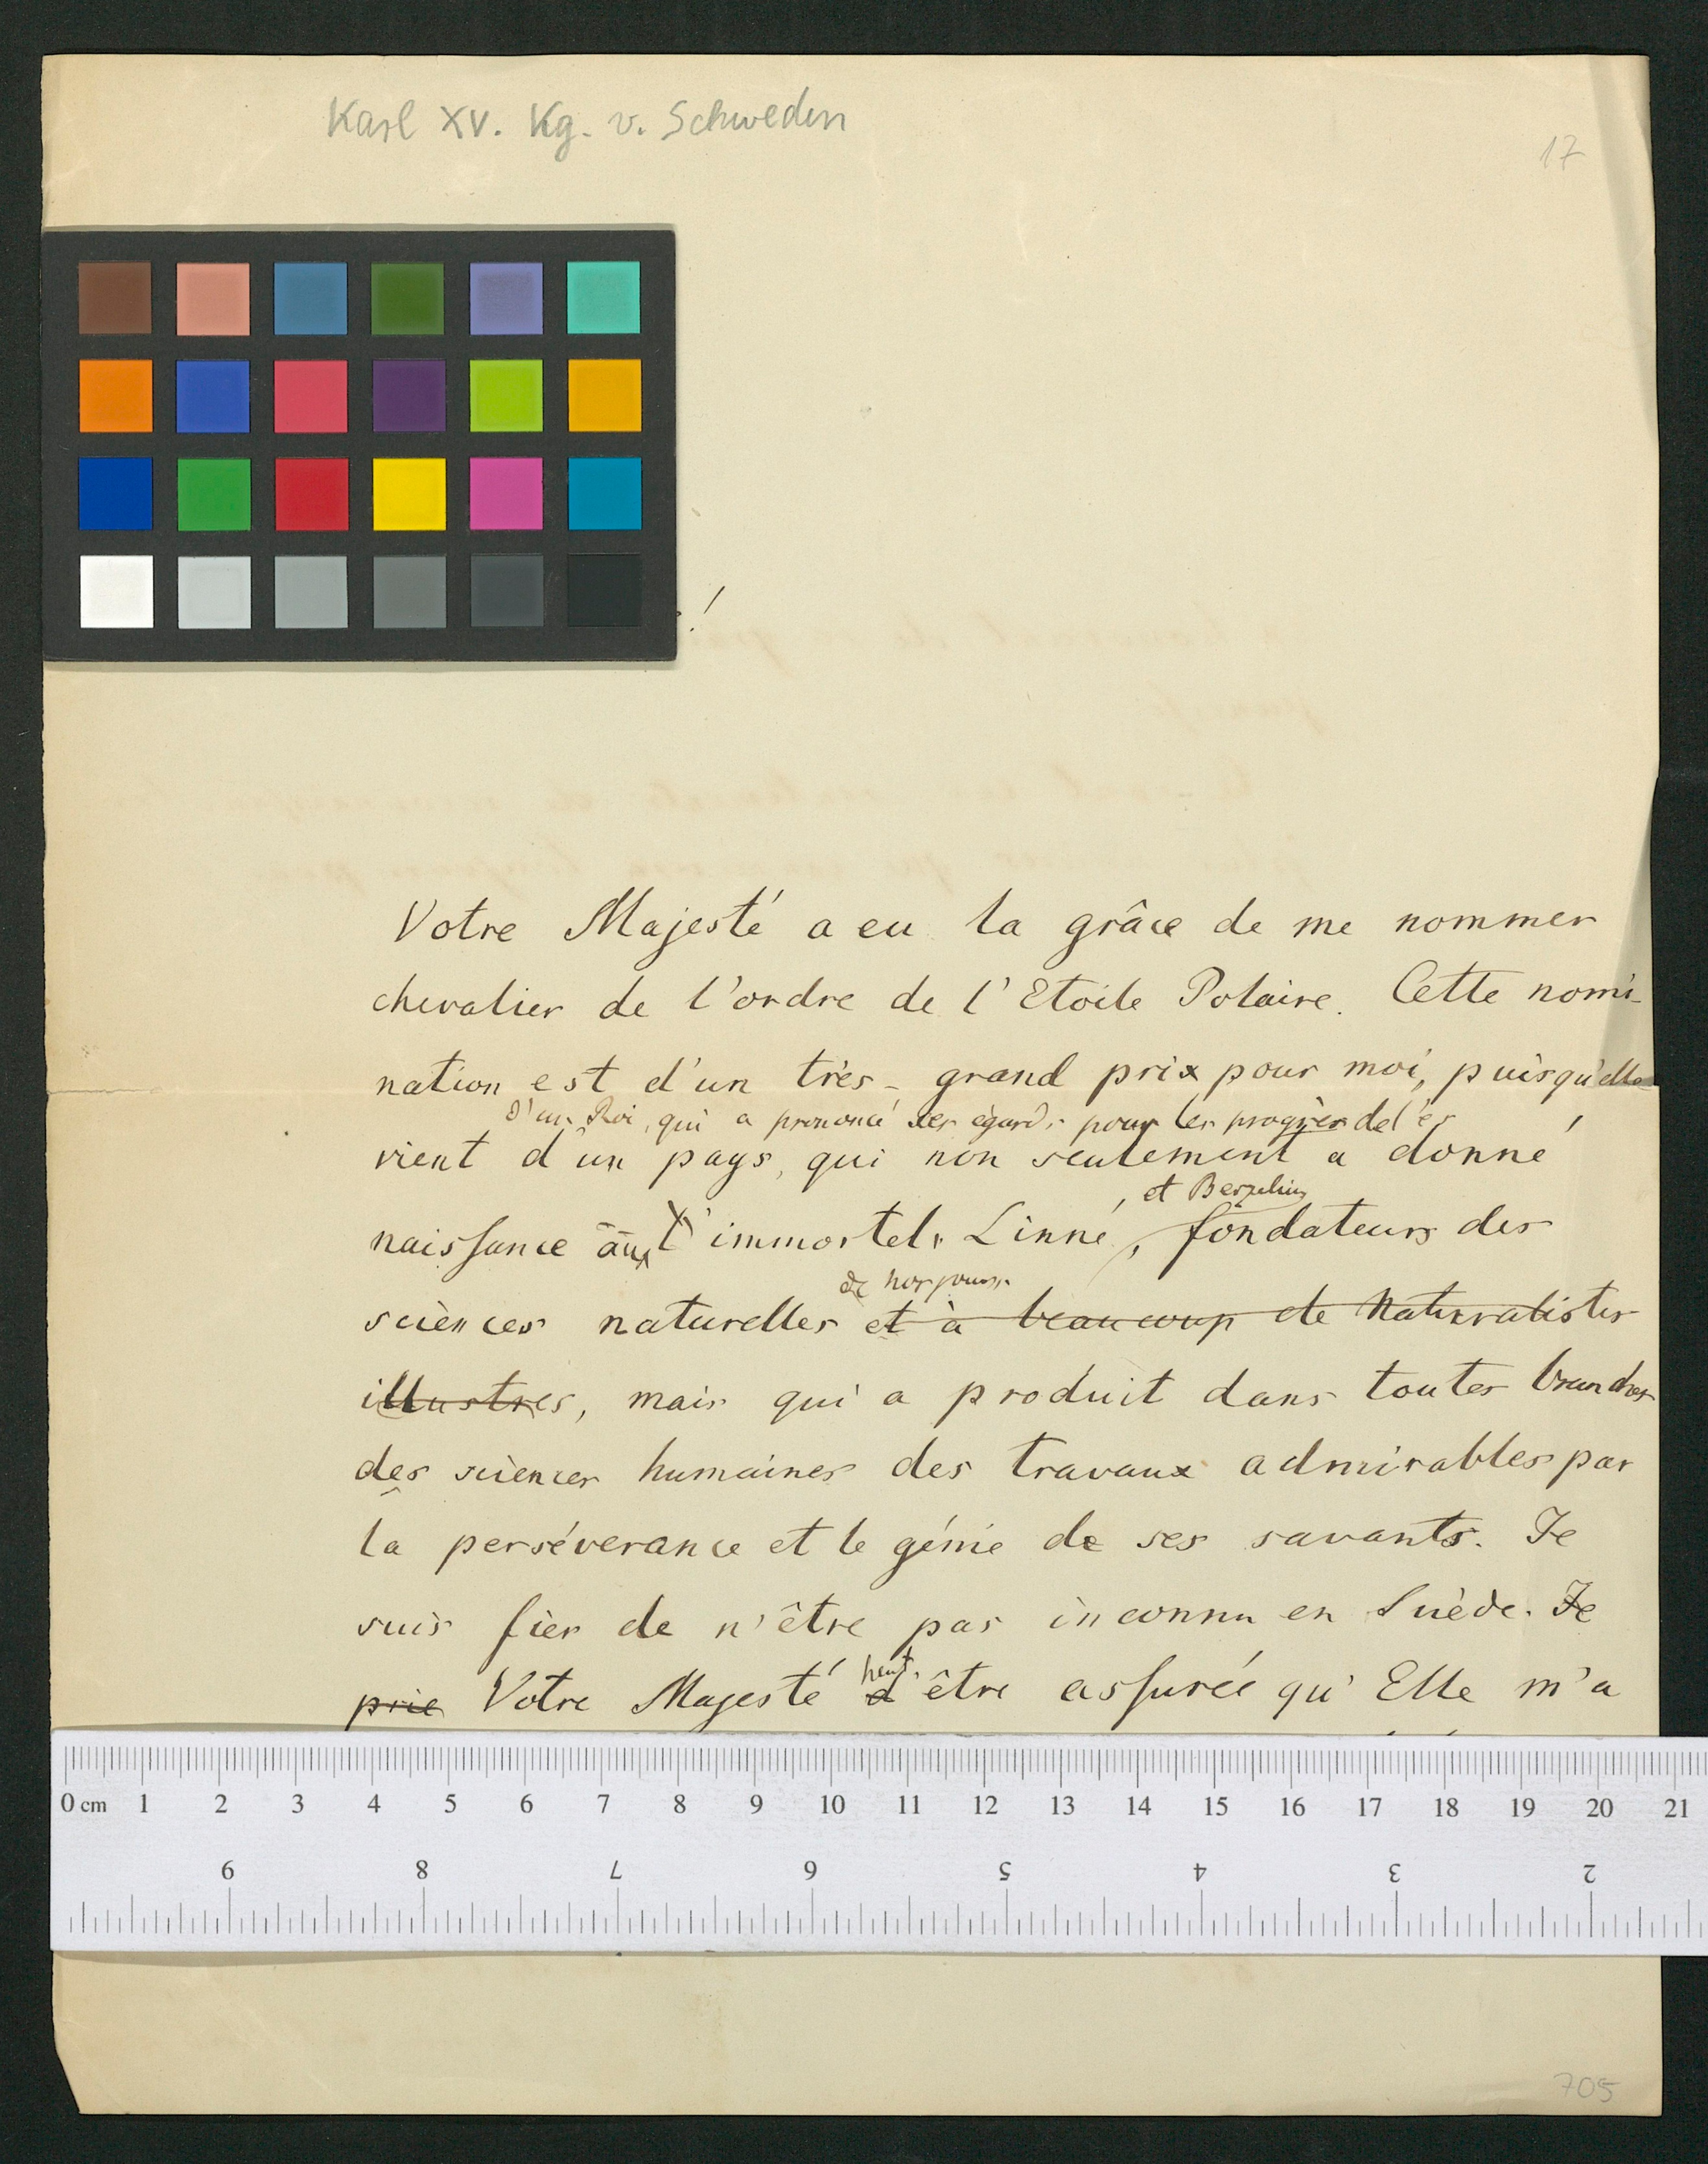 Karl XV. Kg. v. Schweden
17
!
Votre Majesté a eu la grâce de me nommer
chevalier de l'ordre de l'Etoile Polaire. Cette nomi-
nation est d'un très-grand prix pour moi, puisqu'elle
d'un Roi, qui a prononcé ses égards pour les progrès de
vient d'un pays, qui non seulement a donné
, et Berzelius
naissance aux immortels Linné, fondateurs des
de nos jours
sciènces naturelles et à beaucoup de Naturalistes
illustres, mais qui a produit dans toutes branches
des sciences humaines des travaux admirables par
la persévérance et le génie de ses savants. Je
suis fier de n'être pas inconnu en Suède. Je
peut
prie Votre Majesté d'être assurée qu'Elle m'a
0 cm 1 2 3 4 5 6 7 8 9 10 11 12 13 14 15 16 17 18 19 20 21
9 8 7 6 5 4 3 2
705